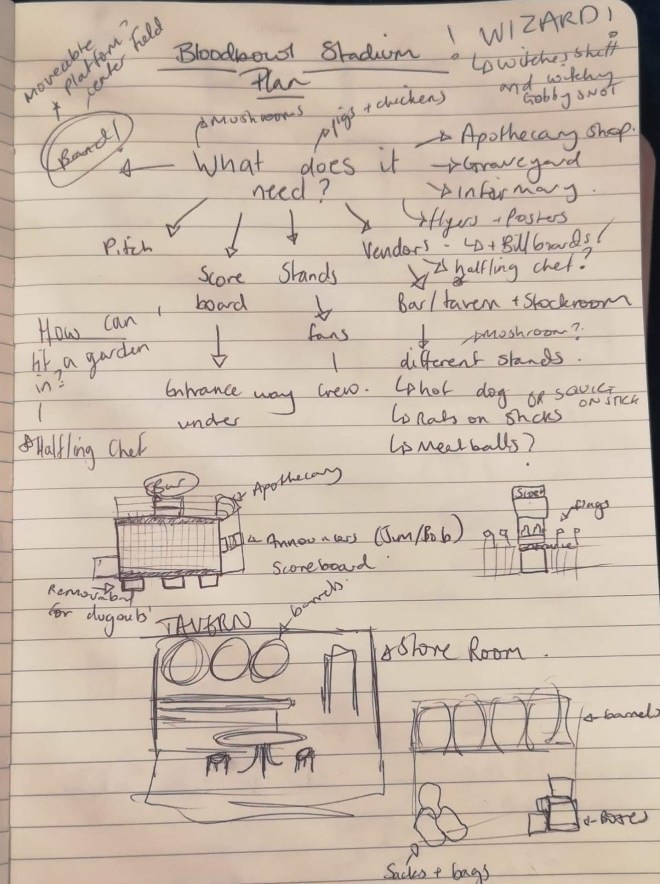 Moveable
Platform?
center field
Bloodbowl Stadium !
Plan
WIZARD!
Witches stuff
and witchy
Gobby snot
Band!
Mushrooms
pigs + chickens
What does it
need?
Apothecary shop.
Graveyard
Infirmary.
flyers + Posters
+ Billboards!
Pitch
Score
board
Stands
Vendors -
halfling chef?
Bar/tavern + Stockroom
fans
Mushroom?
different stands.
Entrance way
under
Crew.
hot dog OR SQUIG
ON STICK
Rats on sticks
Meatballs?
How can
fit a garden
in?
Halfling Chef
Bar
Apothecary
Announcers (Jim/Bob)
Scoreboard
for dugouts
Score
flags
TAVERN
barrels
Store Room.
barrels
Boxes
Sacks + bags